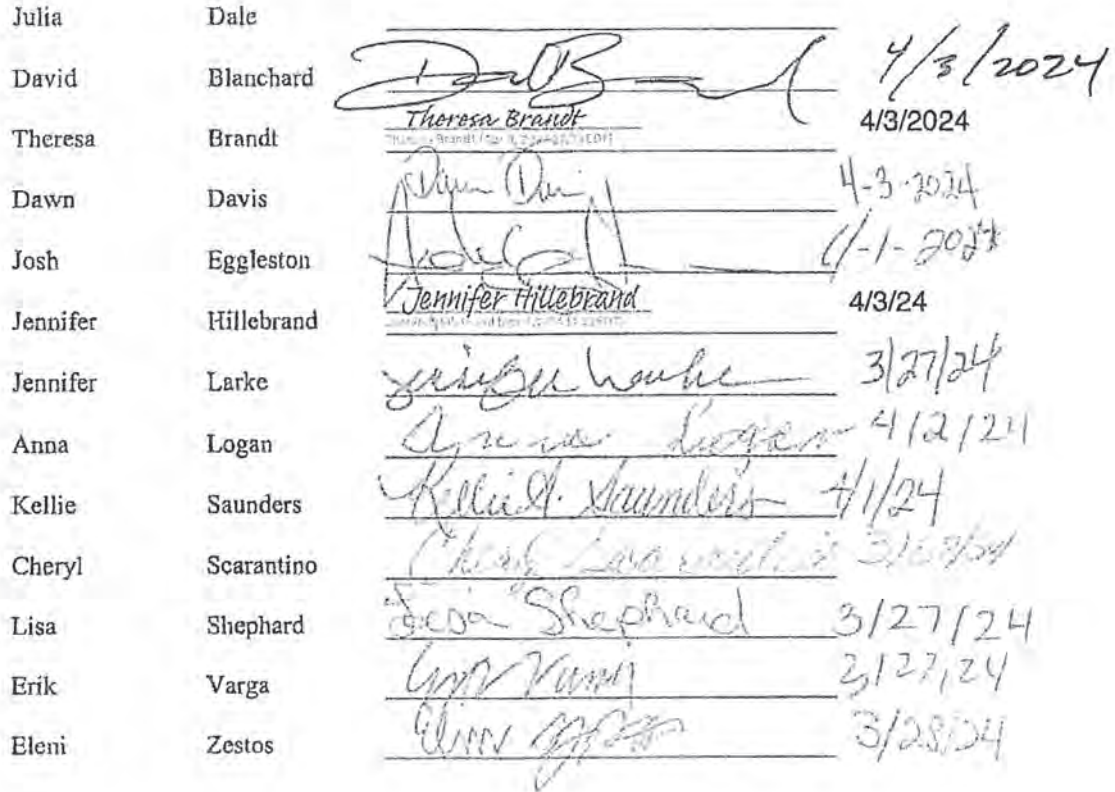 Julia Dale
David Blanchard 4/3/2024
Theresa Brandt Theresa Brandt 4/3/2024
Dawn Davis 4-3-2024
Josh Eggleston
Jennifer Hillebrand Jennifer Hillebrand 4/3/24
Jennifer Larke Jennifer Larke 3/27/24
Anna Logan Anna Logan 4/2/24
Kellie Saunders Kellie A. Saunders 4/1/24
Cheryl Scarantino Cheryl Scarantino
Lisa Shephard Lisa Shephard 3/27/24
Erik Varga 3/27/24
Eleni Zestos 3/28/24